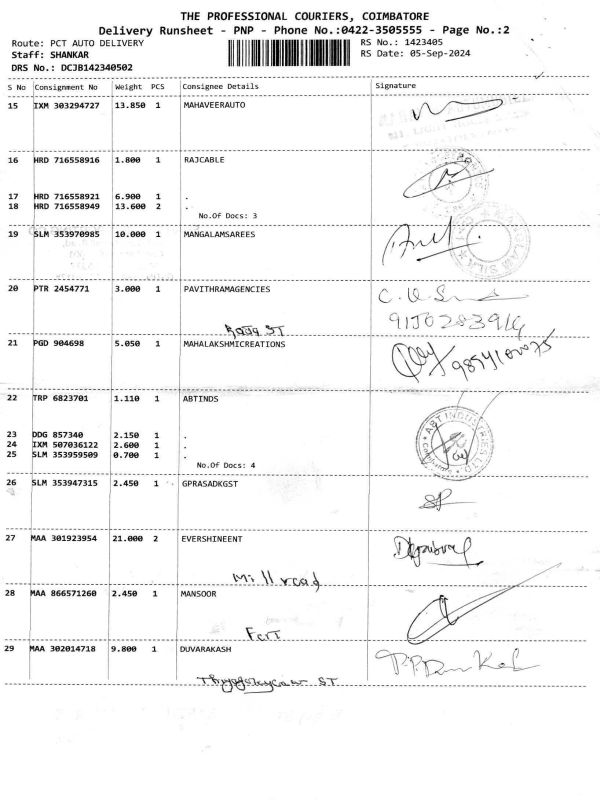 THE PROFESSIONAL COURIERS, COIMBATORE
Delivery Runsheet - PNP - Phone No.:0422-3505555 - Page No.:2
Route: PCT AUTO DELIVERY RS No.: 1423405
Staff: SHANKAR RS Date: 05-Sep-2024
DRS No.: DCJB142340502
S No Consignment No Weight PCS Consignee Details Signature
15 IXM 303294727 13.850 1 MAHAVEERAUTO
16 HRD 716558916 1.800 1 RAJCABLE
17 HRD 716558921 6.900 1 .
18 HRD 716558949 13.600 2 .
No.Of Docs: 3
19 SLM 353970985 10.000 1 MANGALAMSAREES
20 PTR 2454771 3.000 1 PAVITHRAMAGENCIES
21 PGD 904698 5.050 1 MAHALAKSHMICREATIONS
22 TRP 6823701 1.110 1 ABTINDS
ABT INDUSTRIES LTD
23 DDG 857340 2.150 1 .
24 IXM 507036122 2.600 1 .
25 SLM 353959509 0.700 1 .
No.Of Docs: 4
26 SLM 353947315 2.450 1 GPRASADKGST
27 MAA 301923954 21.000 2 EVERSHINEENT
Mill road
28 MAA 866571260 2.450 1 MANSOOR
Fort
29 MAA 302014718 9.800 1 DUVARAKASH